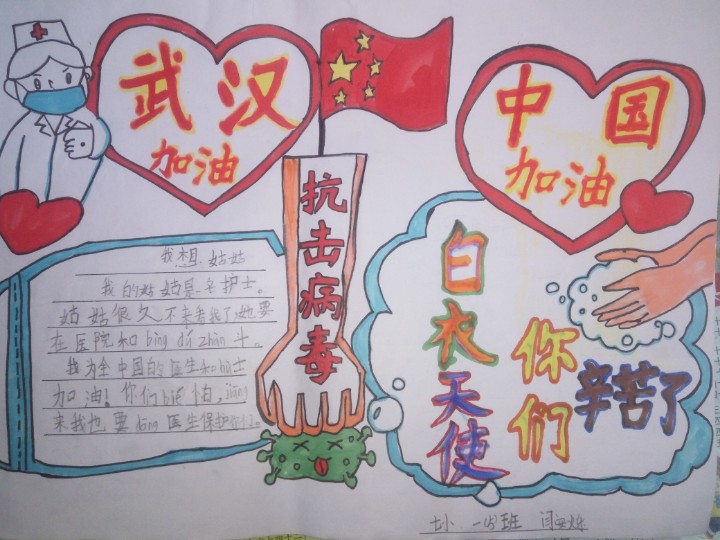 武汉
加油
中国
加油
抗击病毒
我想姑姑
我的姑姑是名护士。
姑姑很久不来看我了,她要
在医院和bìng dú zhàn斗。
我为全中国的医生和hù士
加油!你们bié怕,jiāng
来我也要dāng医生保护你们。
白衣天使
你们
辛苦了
七小 一(5)班